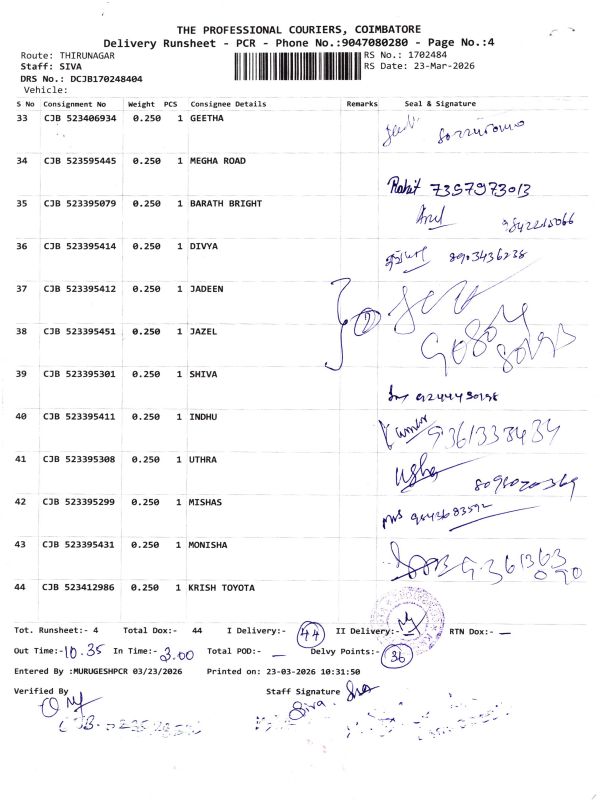 THE PROFESSIONAL COURIERS, COIMBATORE
Delivery Runsheet - PCR - Phone No.:9047080280 - Page No.:4
Route: THIRUNAGAR RS No.: 1702484
Staff: SIVA RS Date: 23-Mar-2026
DRS No.: DCJB170248404
Vehicle:
S No Consignment No Weight PCS Consignee Details Remarks Seal & Signature
33 CJB 523406934 0.250 1 GEETHA
34 CJB 523595445 0.250 1 MEGHA ROAD
Rohit 7357973013
35 CJB 523395079 0.250 1 BARATH BRIGHT
Arul 9842215066
36 CJB 523395414 0.250 1 DIVYA
8903436238
37 CJB 523395412 0.250 1 JADEEN
2
38 CJB 523395451 0.250 1 JAZEL
39 CJB 523395301 0.250 1 SHIVA
40 CJB 523395411 0.250 1 INDHU
Kumar 9361338434
41 CJB 523395308 0.250 1 UTHRA
Usha
42 CJB 523395299 0.250 1 MISHAS
9843683592
43 CJB 523395431 0.250 1 MONISHA
44 CJB 523412986 0.250 1 KRISH TOYOTA
Tot. Runsheet:- 4 Total Dox:- 44 I Delivery:- 44 II Delivery:- RTN Dox:- —
Out Time:- 10.35 In Time:- 3.00 Total POD:- — Delvy Points:- 36
Entered By :MURUGESHPCR 03/23/2026 Printed on: 23-03-2026 10:31:50
Verified By Staff Signature
Siva